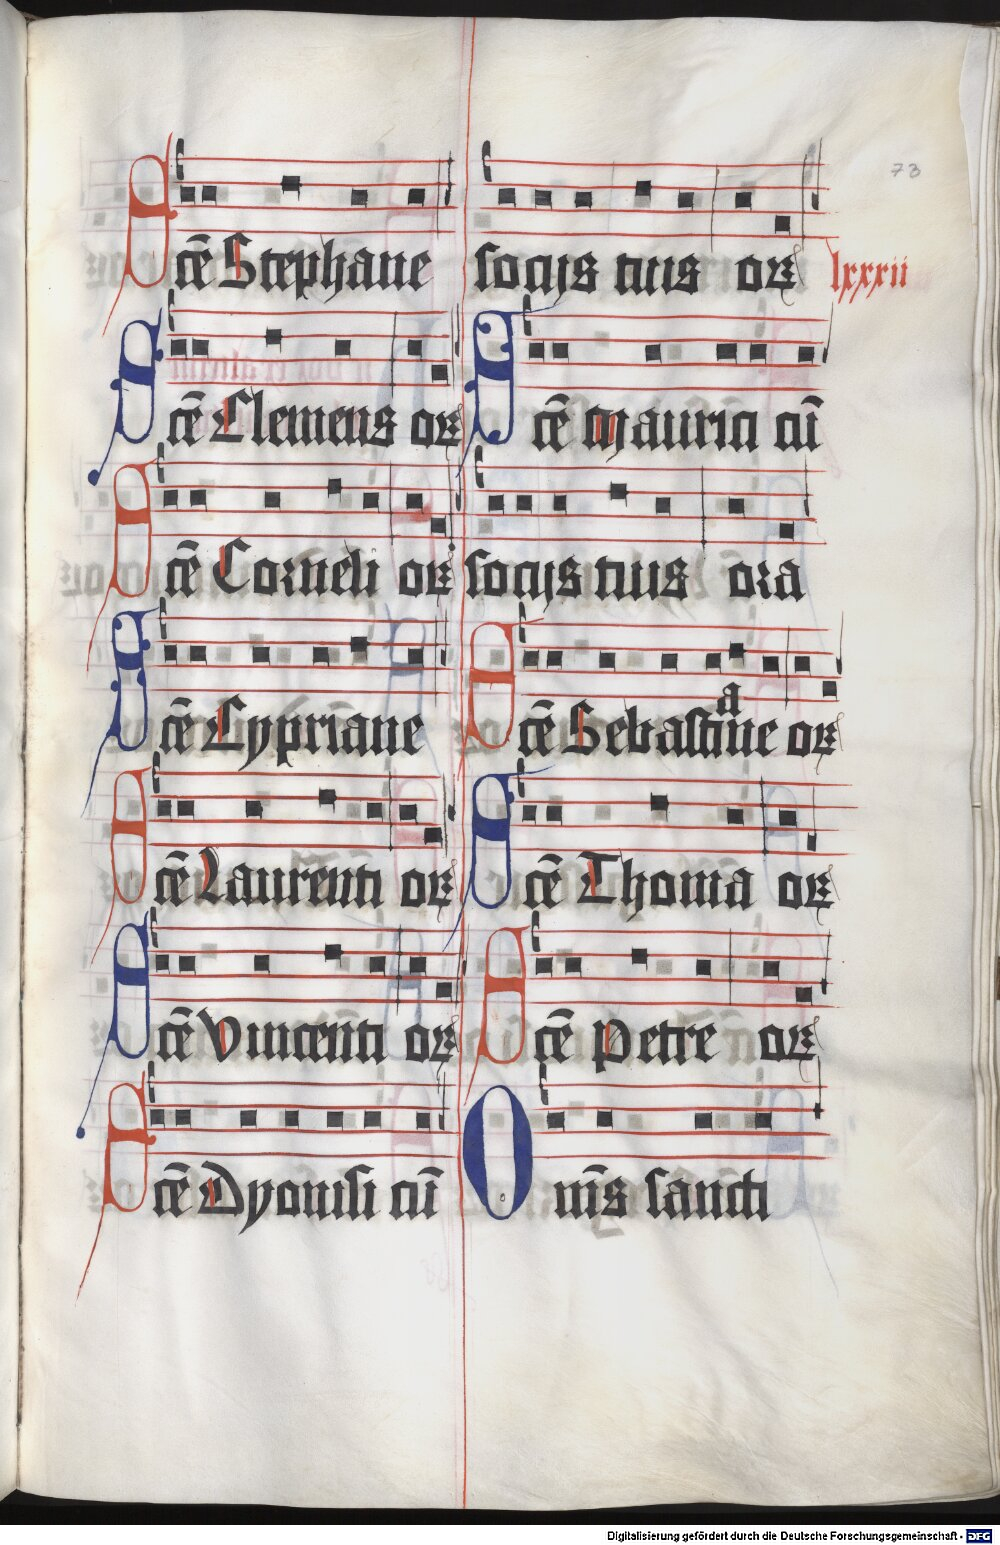 73
lxxxii
Scē Stephane
Scē Clemens or
Scē Corneli or
Scē Cypriāne
Scē Laurenti or
Scē Vincēnti or
Scē Dyonisi cū
socijs tuis or
Scē Mauriti cū
socijs tuis ora
Scē Sebastiane or
Scē Thoma or
Scē Petre or
Om̄s sancti
Digitalisierung gefördert durch die Deutsche Forschungsgemeinschaft - DFG